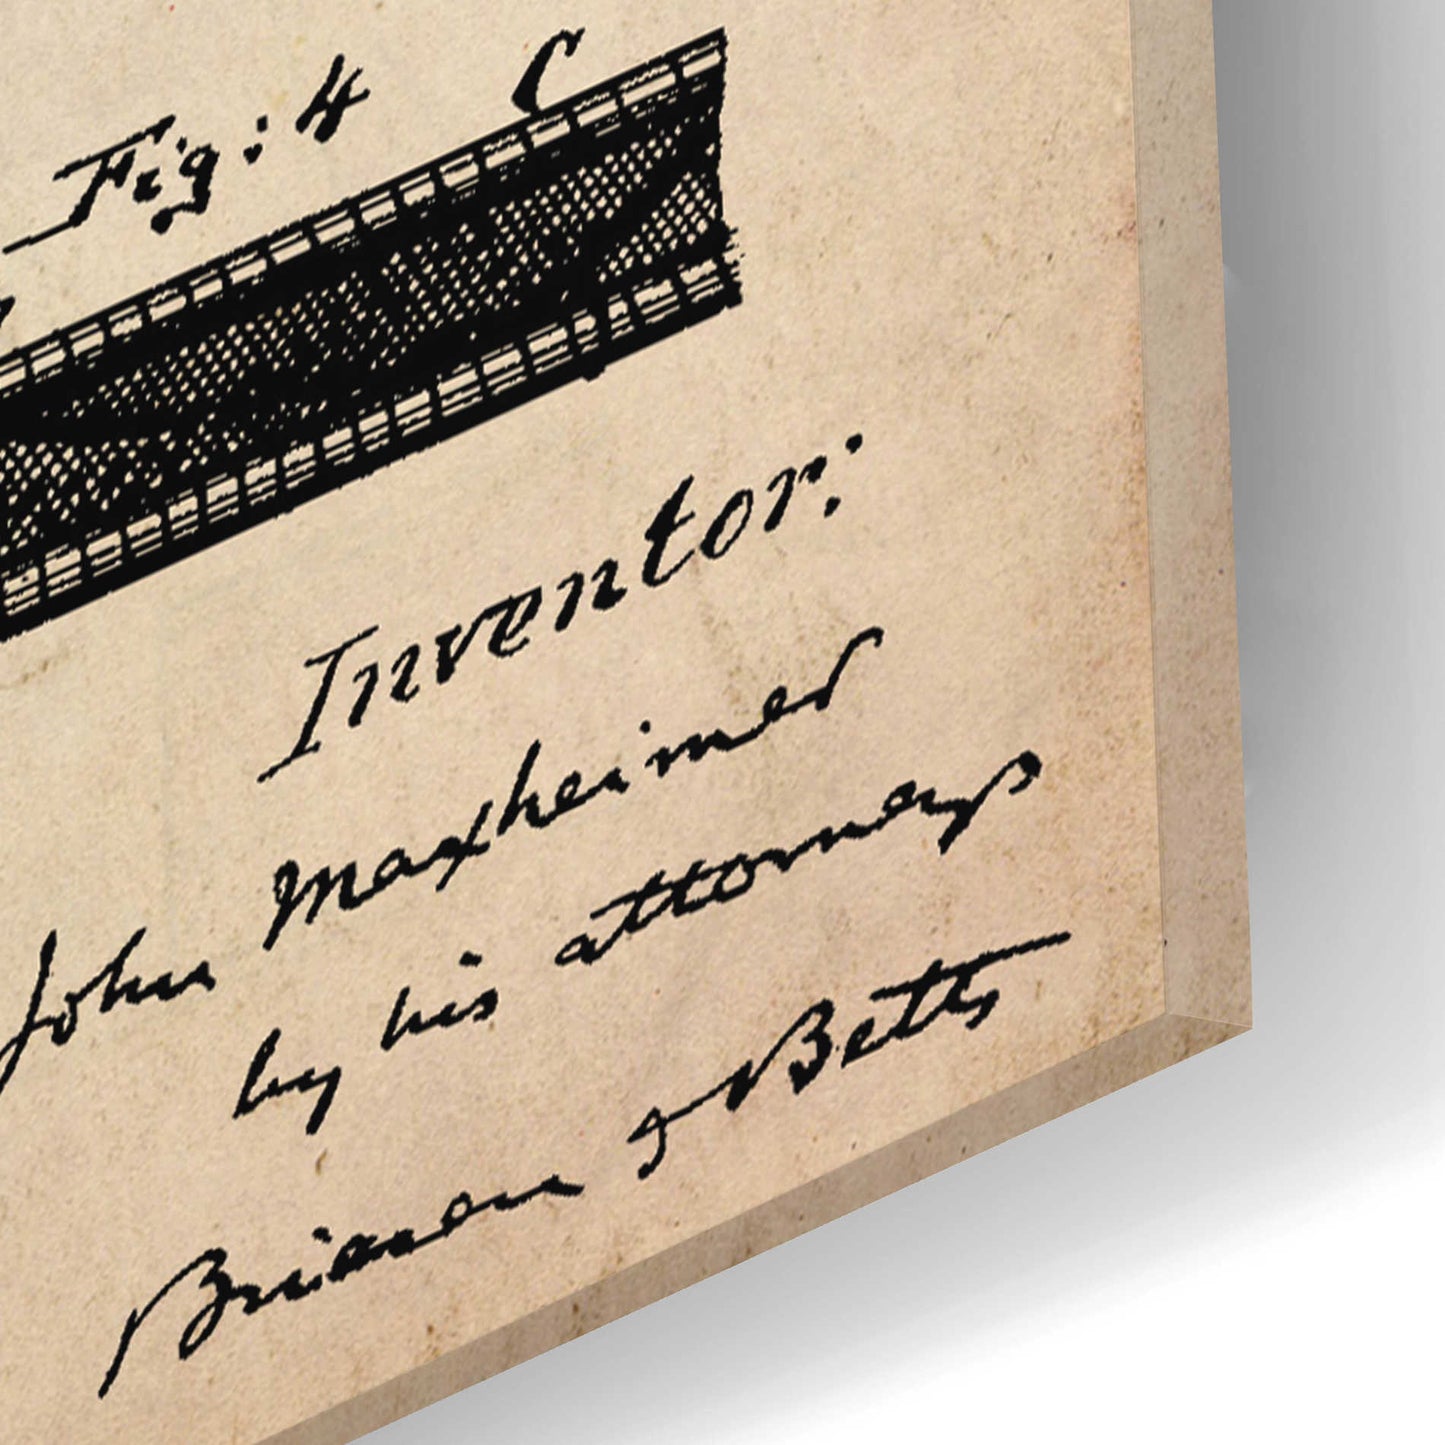 Fig: 4
C
Inventor:
John Maxheimer
by his attorneys
Briesen & Betts